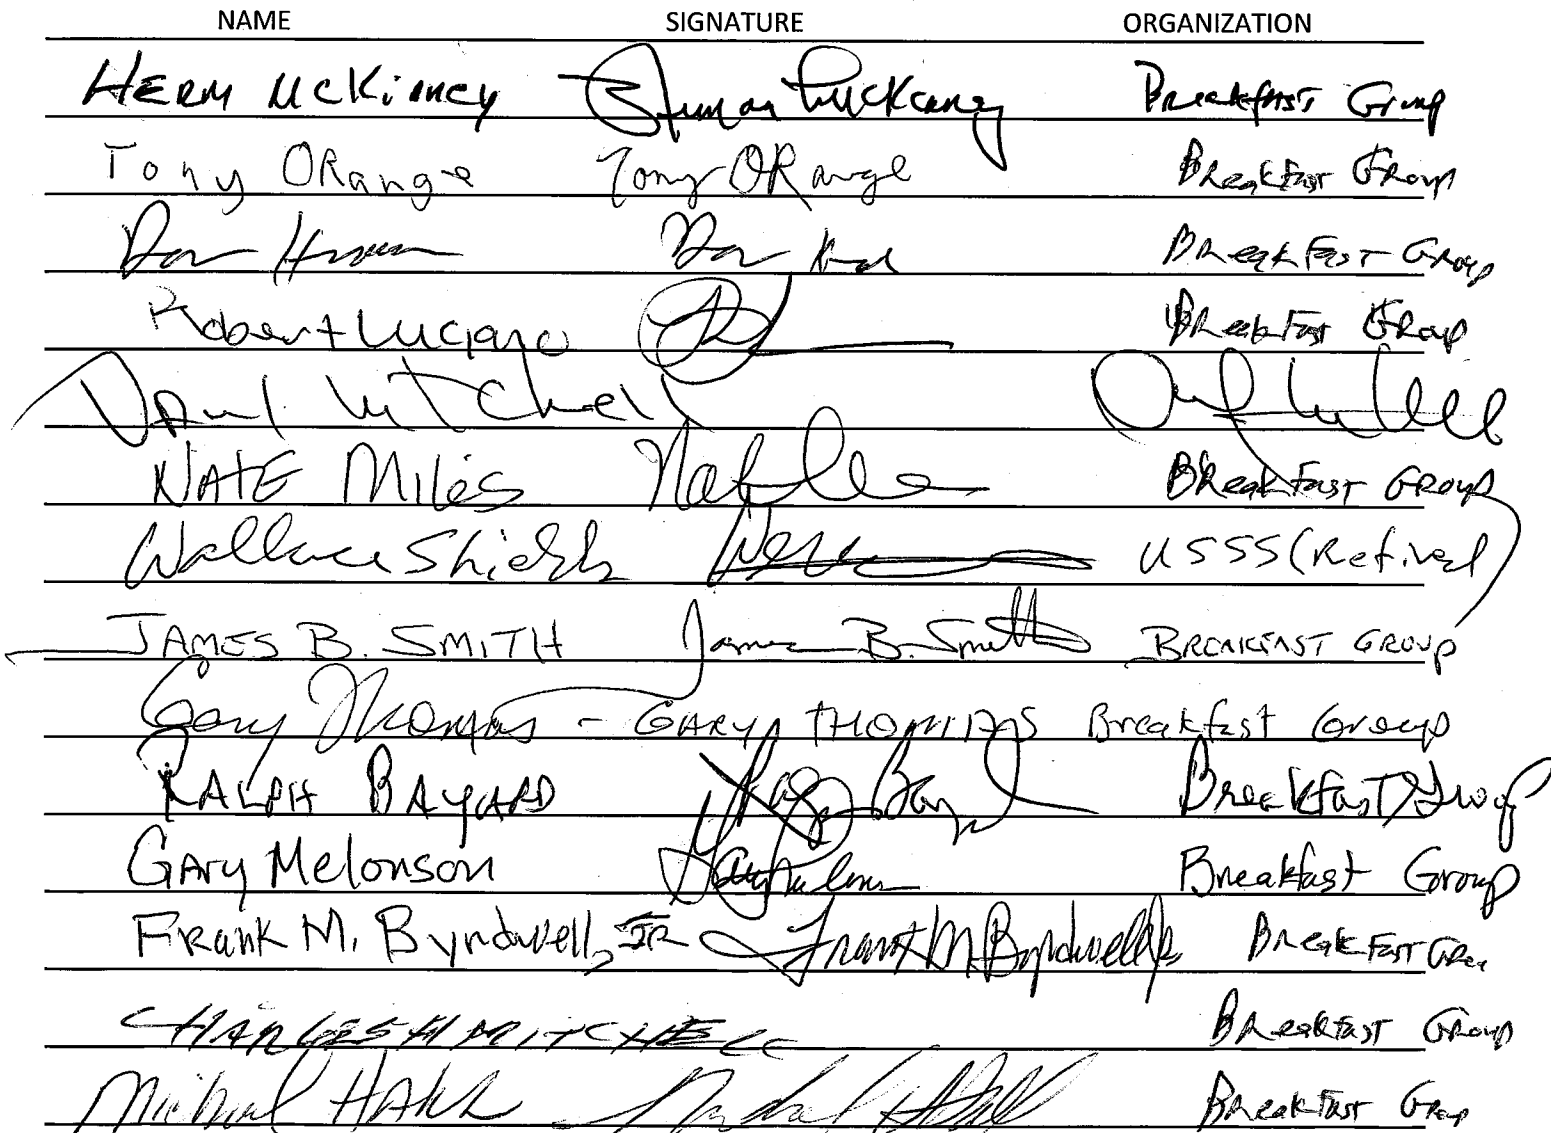 NAME SIGNATURE ORGANIZATION
HERM McKinney Herman McKinney Breakfast Group
Tony ORange Tony ORange BReakFast GRoup
BReakFast GRoup
Robert Luciano BReakFast GRoup
Mitchell
NATE Miles BReakFast GRoup
Wallace Shields USSS (Retired)
JAMES B. SMITH James B. Smith BREAKFAST GROUP
Gary Thomas - GARY THOMAS Breakfast Group
RALPH BAYARD Breakfast Group
GARY Melonson Breakfast Group
FRank M. Byrdwell, JR Frank M. Byrdwell Jr BReakFast
CHARLES H MITCHELL BReakFast GRoup
Michael BReakFast Group